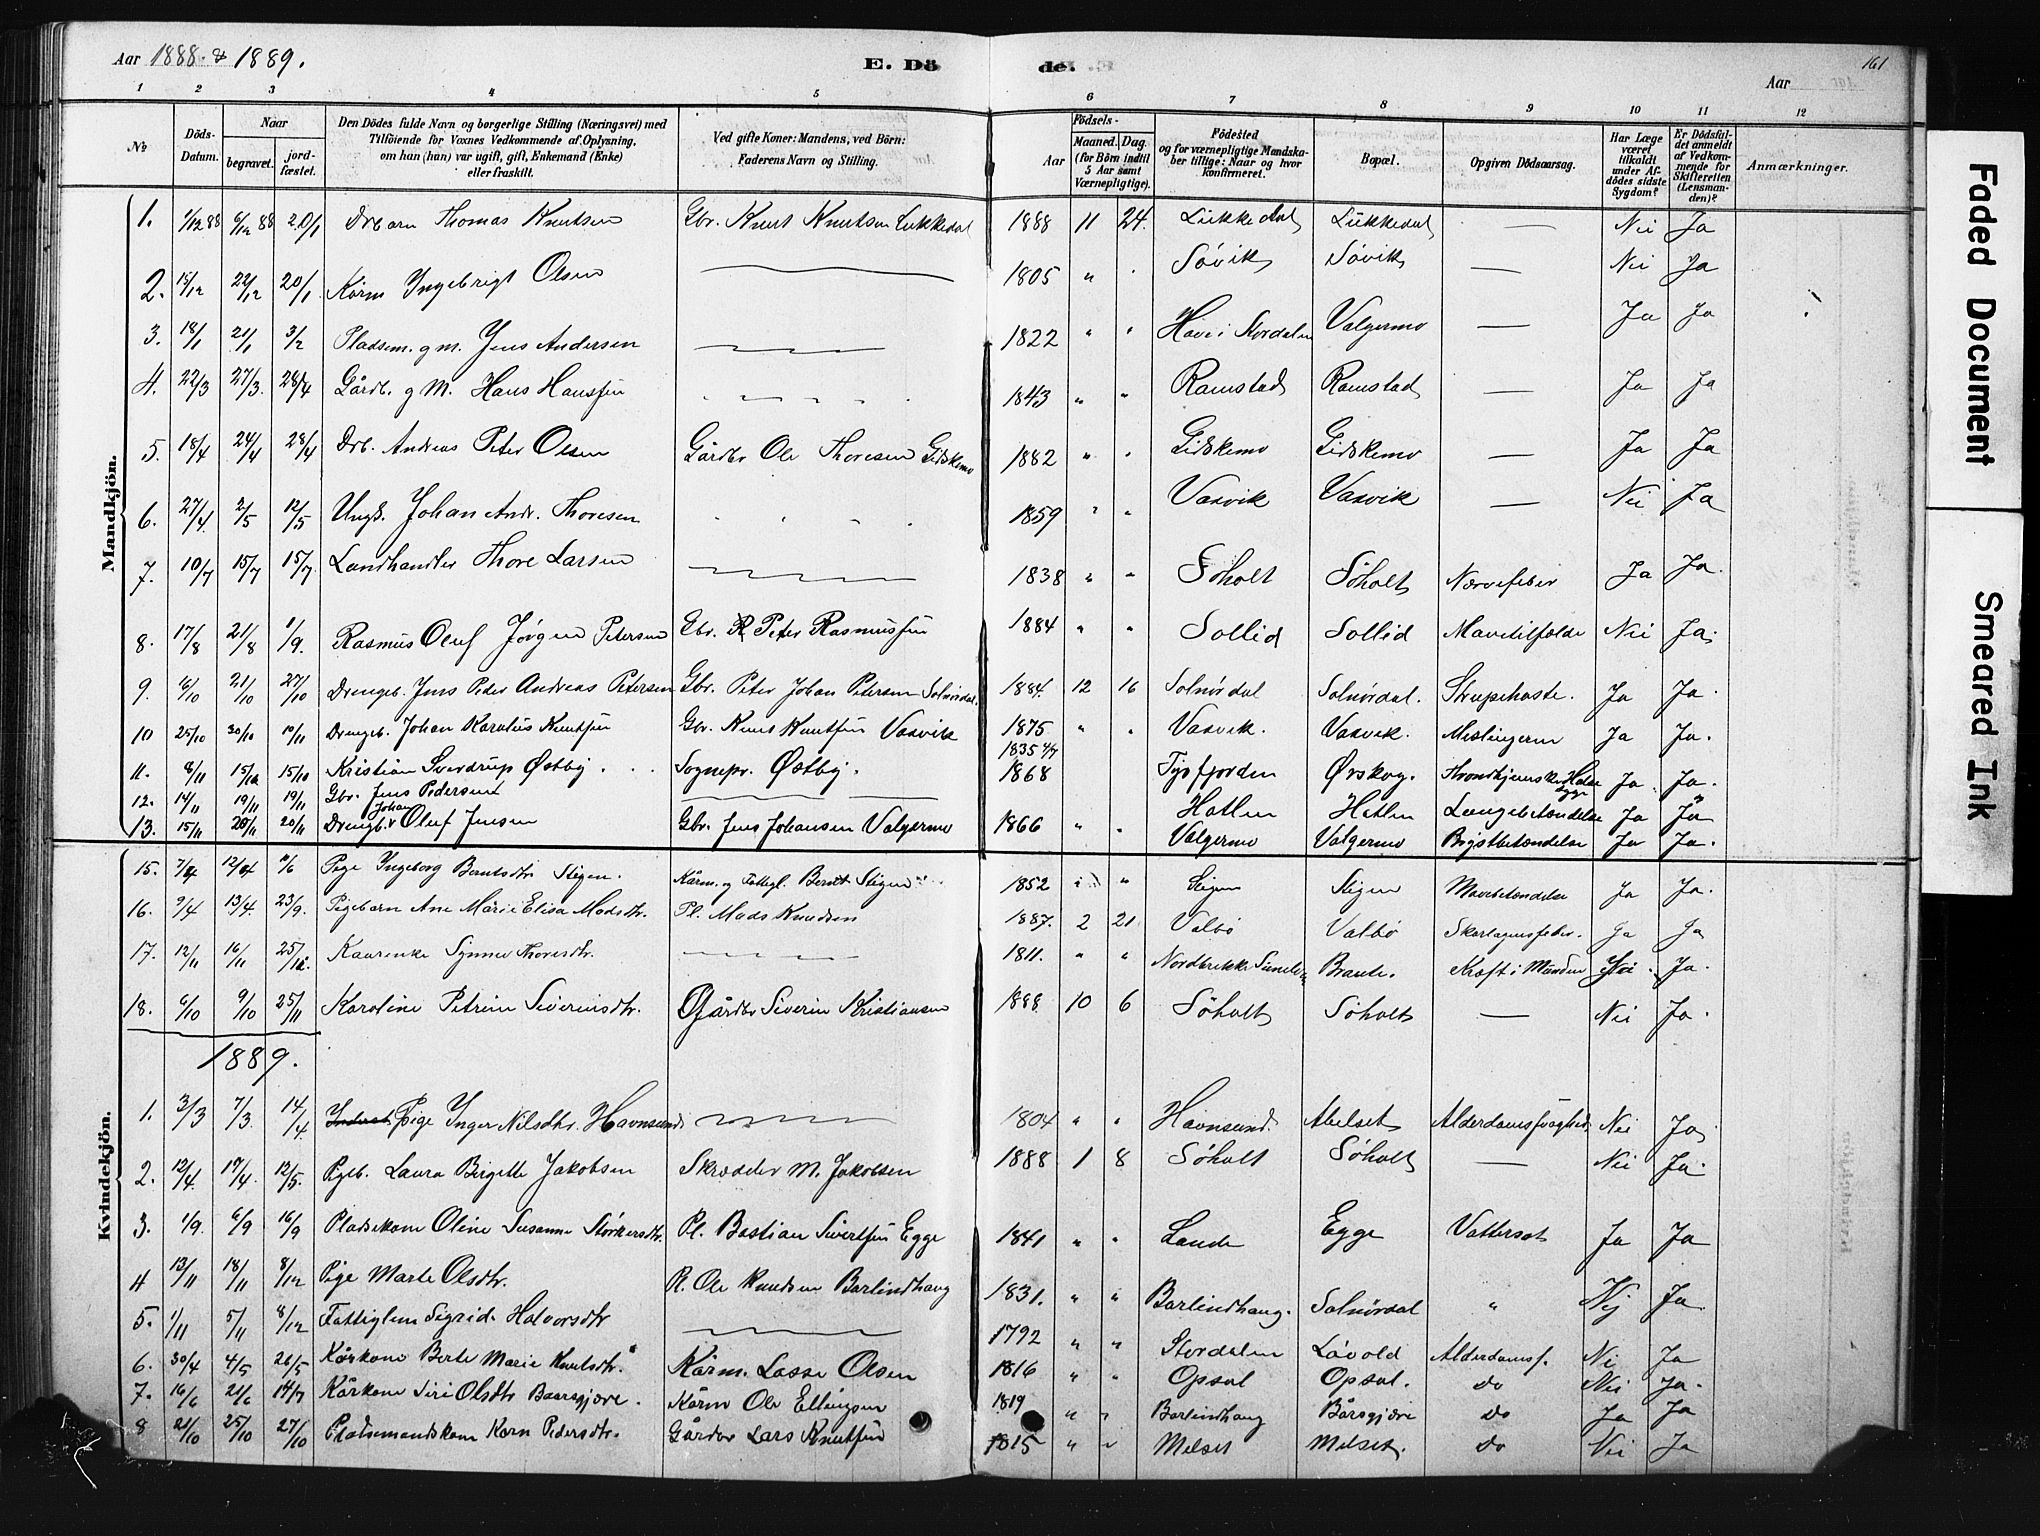 Aar 1888 & 1889.
E. Döde.
161
Aar
1 2 3 4 5 6 7 8 9 10 11 12
No
Döds-Datum.
Naar
begravet.
jordfæstet.
Den Dödes fulde Navn og borgerlige Stilling (Næringsvei) med Tilföiende for Voxnes Vedkommende af Oplysning, om han (hun) var ugift, gift, Enkemand (Enke) eller fraskilt.
Ved gifte Koner: Mandens, ved Börn: Faderens Navn og Stilling.
Födsels-
Aar
Maaned. Dag.
(for Börn indtil 5 Aar samt Værnepligtige).
Födested og for værnepligtige Mandskaber tillige: Naar og hvor konfirmeret.
Bopæl.
Opgiven Dödsaarsag.
Har Læge været tilkaldt under Afdödes sidste Sygdom?
Er Dödsfuldet anmeldt af Vedkommende for Skifteretten (Lensmanden)?
Anmærkninger.
Mandkjön.
1. 1/12 88 6/12 88 20/1 Drbarn Thomas Knutsen Gbr. Knut Knutsen Lukkedal 1888 11 24. Lukkedal Lukkedal — Nei Ja
2. 15/12 22/12 20/1 Kårm Ingebrigt Olsen 1805 " Søvik Søvik — Nei Ja
3. 18/1 21/1 3/2 Pladsm. g m. Jens Andersen 1822 " " Have i Stordalen Valgermo — Ja Ja
4. 22/3 27/3 28/4 Gårdb. g M. Hans Hansen 1843 " " Ramstad Ramstad — Ja Ja
5. 18/4 24/4 28/4 Drb. Andreas Peter Olsen Gårdbr Ole Thoresen Gidskemo 1882 " " Gidskemo Gidskemo — Ja Ja
6. 27/4 2/5 12/5 Ungk. Johan Andr. Thoresen 1859 " " Vasvik Vasvik — Nei Ja
7. 10/7 15/7 15/7 Landhandler Thore Larsen 1838 " " Søholt Søholt Nervefeber Ja Ja.
8. 17/8 21/8 1/9. Rasmus Oluf Jørgen Petersen Gbr. R Peter Rasmussen 1884 " " Sollid Sollid Mavetilfælde Nei Ja.
9. 16/10 21/10 27/10 Drengeb. Jens Peder Andreas Petersen Gbr. Peter Johan Petersen Solnørdal. 1884. 12 16 Solnørdal Solnørdal. Strupehoste. Ja Ja.
10 25/10 30/10 10/11 Drengeb. Johan Karolus Knutsen Gbr. Knut Knutsen Vasvik 1875 " " Vasvik. Vasvik. Meslingerne Ja Ja.
1835 4/7
11. 8/11 15/10 15/10 Kristian Sverdrup Østby. Sognepr. Østby. 1868 Tysfjorden Ørskog. Throndhjemske Halssyge Ja. Ja.
12. 14/11 19/11 19/11 Gbr. Jens Pedersen Hatlen Hatlen Lungebetændelse Ja Ja
13. 15/11 20/11 20/11 Drengb. Johan Oluf Jensen Gbr. Jens Johansen Valgermo 1866 " " Valgermo Valgermo Brystbetændelse Ja Ja.
Kvindekjön.
15. 7/4 12/4 11/6 Pige Ingeborg Berntsdtr Stigen. Kårm. og Fattigl. Bernt Stigen 1852 " " Stigen Stigen Mavebetændelse Ja Ja.
16. 9/4 13/4. 23/9. Pigebarn Ane Marie Elisa Madsdtr. Pl. Mads Knudsen 1887. 2 21 Valbø Valbø Skarlagensfeber. Ja Ja
17. 12/11 16/11 25/11 Kaarenke Synnev Thoresdtr. 1811. " " Braute. Kræft i Munden Nei. Ja.
18. 6/10 9/10 25/11 Karoline Petrine Severinsdtr. Gårdbr Siverin Kristiansen 1888 10 6 Søholt Søholt — Nei Ja.
1889.
1. 3/3 7/3. 14/4 Pige Inger Nilsdtr. Havnsund 1804 " " Havnsund. Abelset Alderdomssvaghed Nei Ja
2. 12/4. 17/4. 12/5. Pigeb. Laura Birgitte Jakobsen Skrædder M. Jakobsen 1888 1 8 Søholt Søholt — Nei Ja.
3. 1/9. 6/9 16/9 Pladsekone Oline Susanne Størkersdtr. Pl. Bastian Sivertsen Egge 1841 " " Lande Egge Vattersot Ja Ja
4 13/11 18/11 8/12 Pige Marte Olsdtr. Pl. Ole Knudsen Barlindhaug 1831. " " Barlindhaug. Solnørdal " Nej Ja
5. 1/11 5/11 8/12 Fattiglem Sigrid Halvorsdtr 1792 " " Stordalen Løvold Alderdomsf. Nei Ja
6. 30/4 4/5 26/5 Kårkone Berte Marie Knutsdtr. Kårm. Lasse Olsen 1816 " " Opsal Opsal. do Nei Ja.
7. 16/6 21/6 14/7 Kårkone Siri Olsdtr Baarsgjære. Kårm Ole Ellingsen 1819 " " Barlindhaug Bårsgjære do Ja Ja
8 21/10 25/10 27/10 Pladsmandskone Karn Pedersdtr. Gårdbr Lars Knutsen 1815 " " Melset Melset. do Nei Ja
Faded Document
Smeared Ink